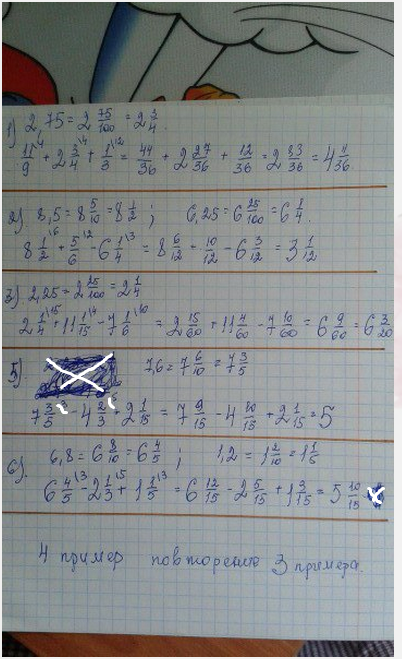 1) 2,75 = 2 75/100 = 2 3/4.
11/9 \4 + 2 3/4 \9 + 1/3 \12 = 44/36 + 2 27/36 + 12/36 = 2 83/36 = 4 11/36.
2) 8,5 = 8 5/10 = 8 1/2 ; 6,25 = 6 25/100 = 6 1/4.
8 1/2 \6 + 5/6 \2 - 6 1/4 \3 = 8 6/12 + 10/12 - 6 3/12 = 3 1/12
3) 2,25 = 2 25/100 = 2 1/4
2 1/4 \15 + 11 1/15 \4 - 7 1/6 \10 = 2 15/60 + 11 4/60 - 7 10/60 = 6 9/60 = 6 3/20
5) 7,6 = 7 6/10 = 7 3/5
7 3/5 \3 - 4 2/3 \5 + 2 1/15 = 7 9/15 - 4 10/15 + 2 1/15 = 5
6). 6,8 = 6 8/10 = 6 4/5 ; 1,2 = 1 2/10 = 1 1/5
6 4/5 \3 - 2 1/3 \5 + 1 1/5 \3 = 6 12/15 - 2 5/15 + 1 3/15 = 5 10/15
4 пример повторение 3 примера.